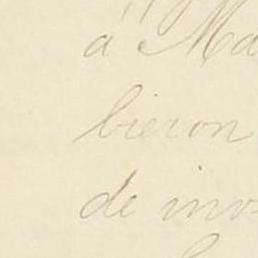 á Ma
bieron
de ino